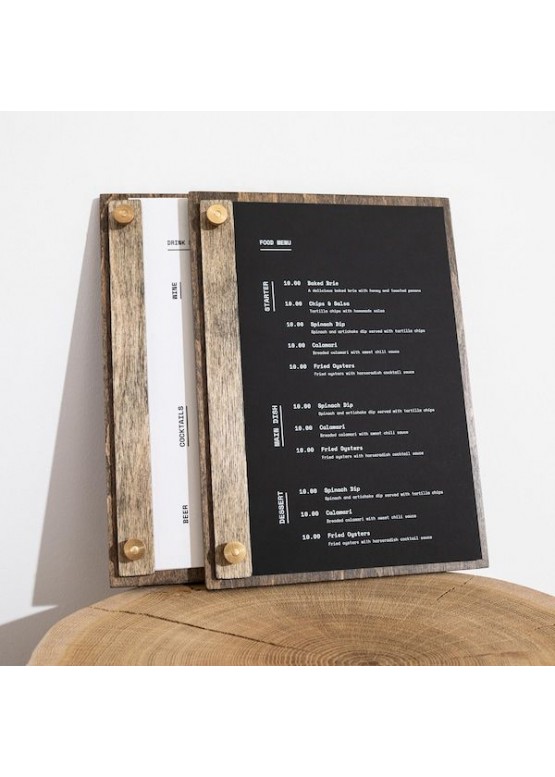 DRINK
WINE
COCKTAILS
BEER
FOOD MENU
STARTER
10.00 Baked Brie
A delicious baked brie with honey and toasted panera
10.00 Chips & Salsa
Tortilla chips with homemade salsa
10.00 Spinach Dip
Spinach and artichoke dip served with tortilla chips
10.00 Calamari
Breaded calamari with sweet chili sauce
10.00 Fried Oysters
Fried oysters with horseradish cocktail sauce
MAIN DISH
10.00 Spinach Dip
Spinach and artichoke dip served with tortilla chips
10.00 Calamari
Breaded calamari with sweet chili sauce
10.00 Fried Oysters
Fried oysters with horseradish cocktail sauce
DESSERT
10.00 Spinach Dip
Spinach and artichoke dip served with tortilla chips
10.00 Calamari
Breaded calamari with sweet chili sauce
10.00 Fried Oysters
Fried oysters with horseradish cocktail sauce